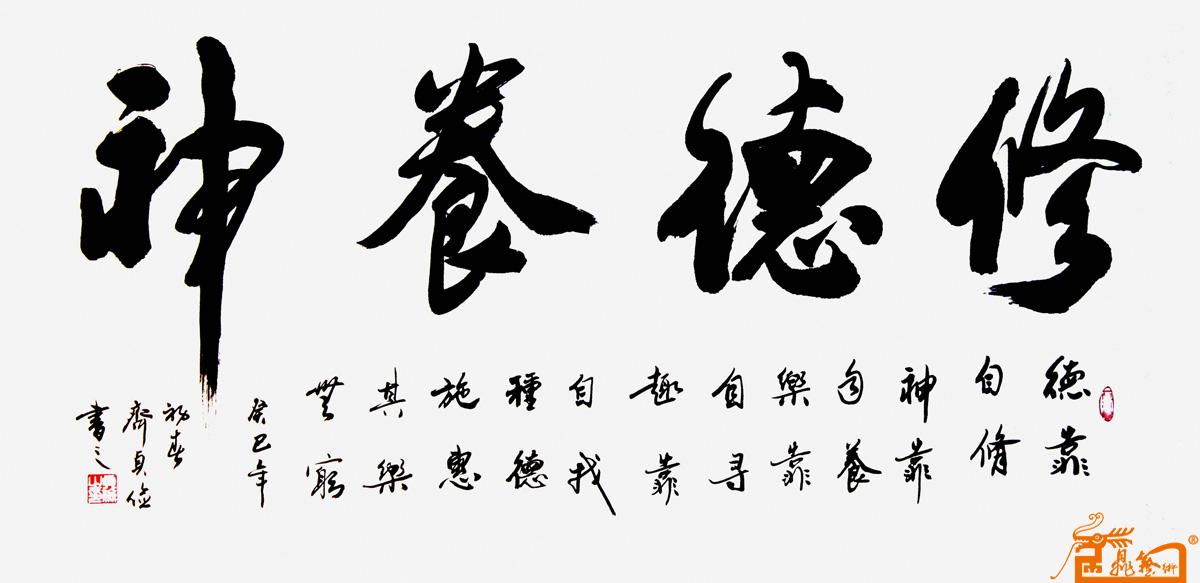 修德養神
德靠
自脩
神靠
自養
樂靠
自尋
趣靠
自找
種德
施惠
其樂
無窮
癸巳年
初春
齊貞
書之